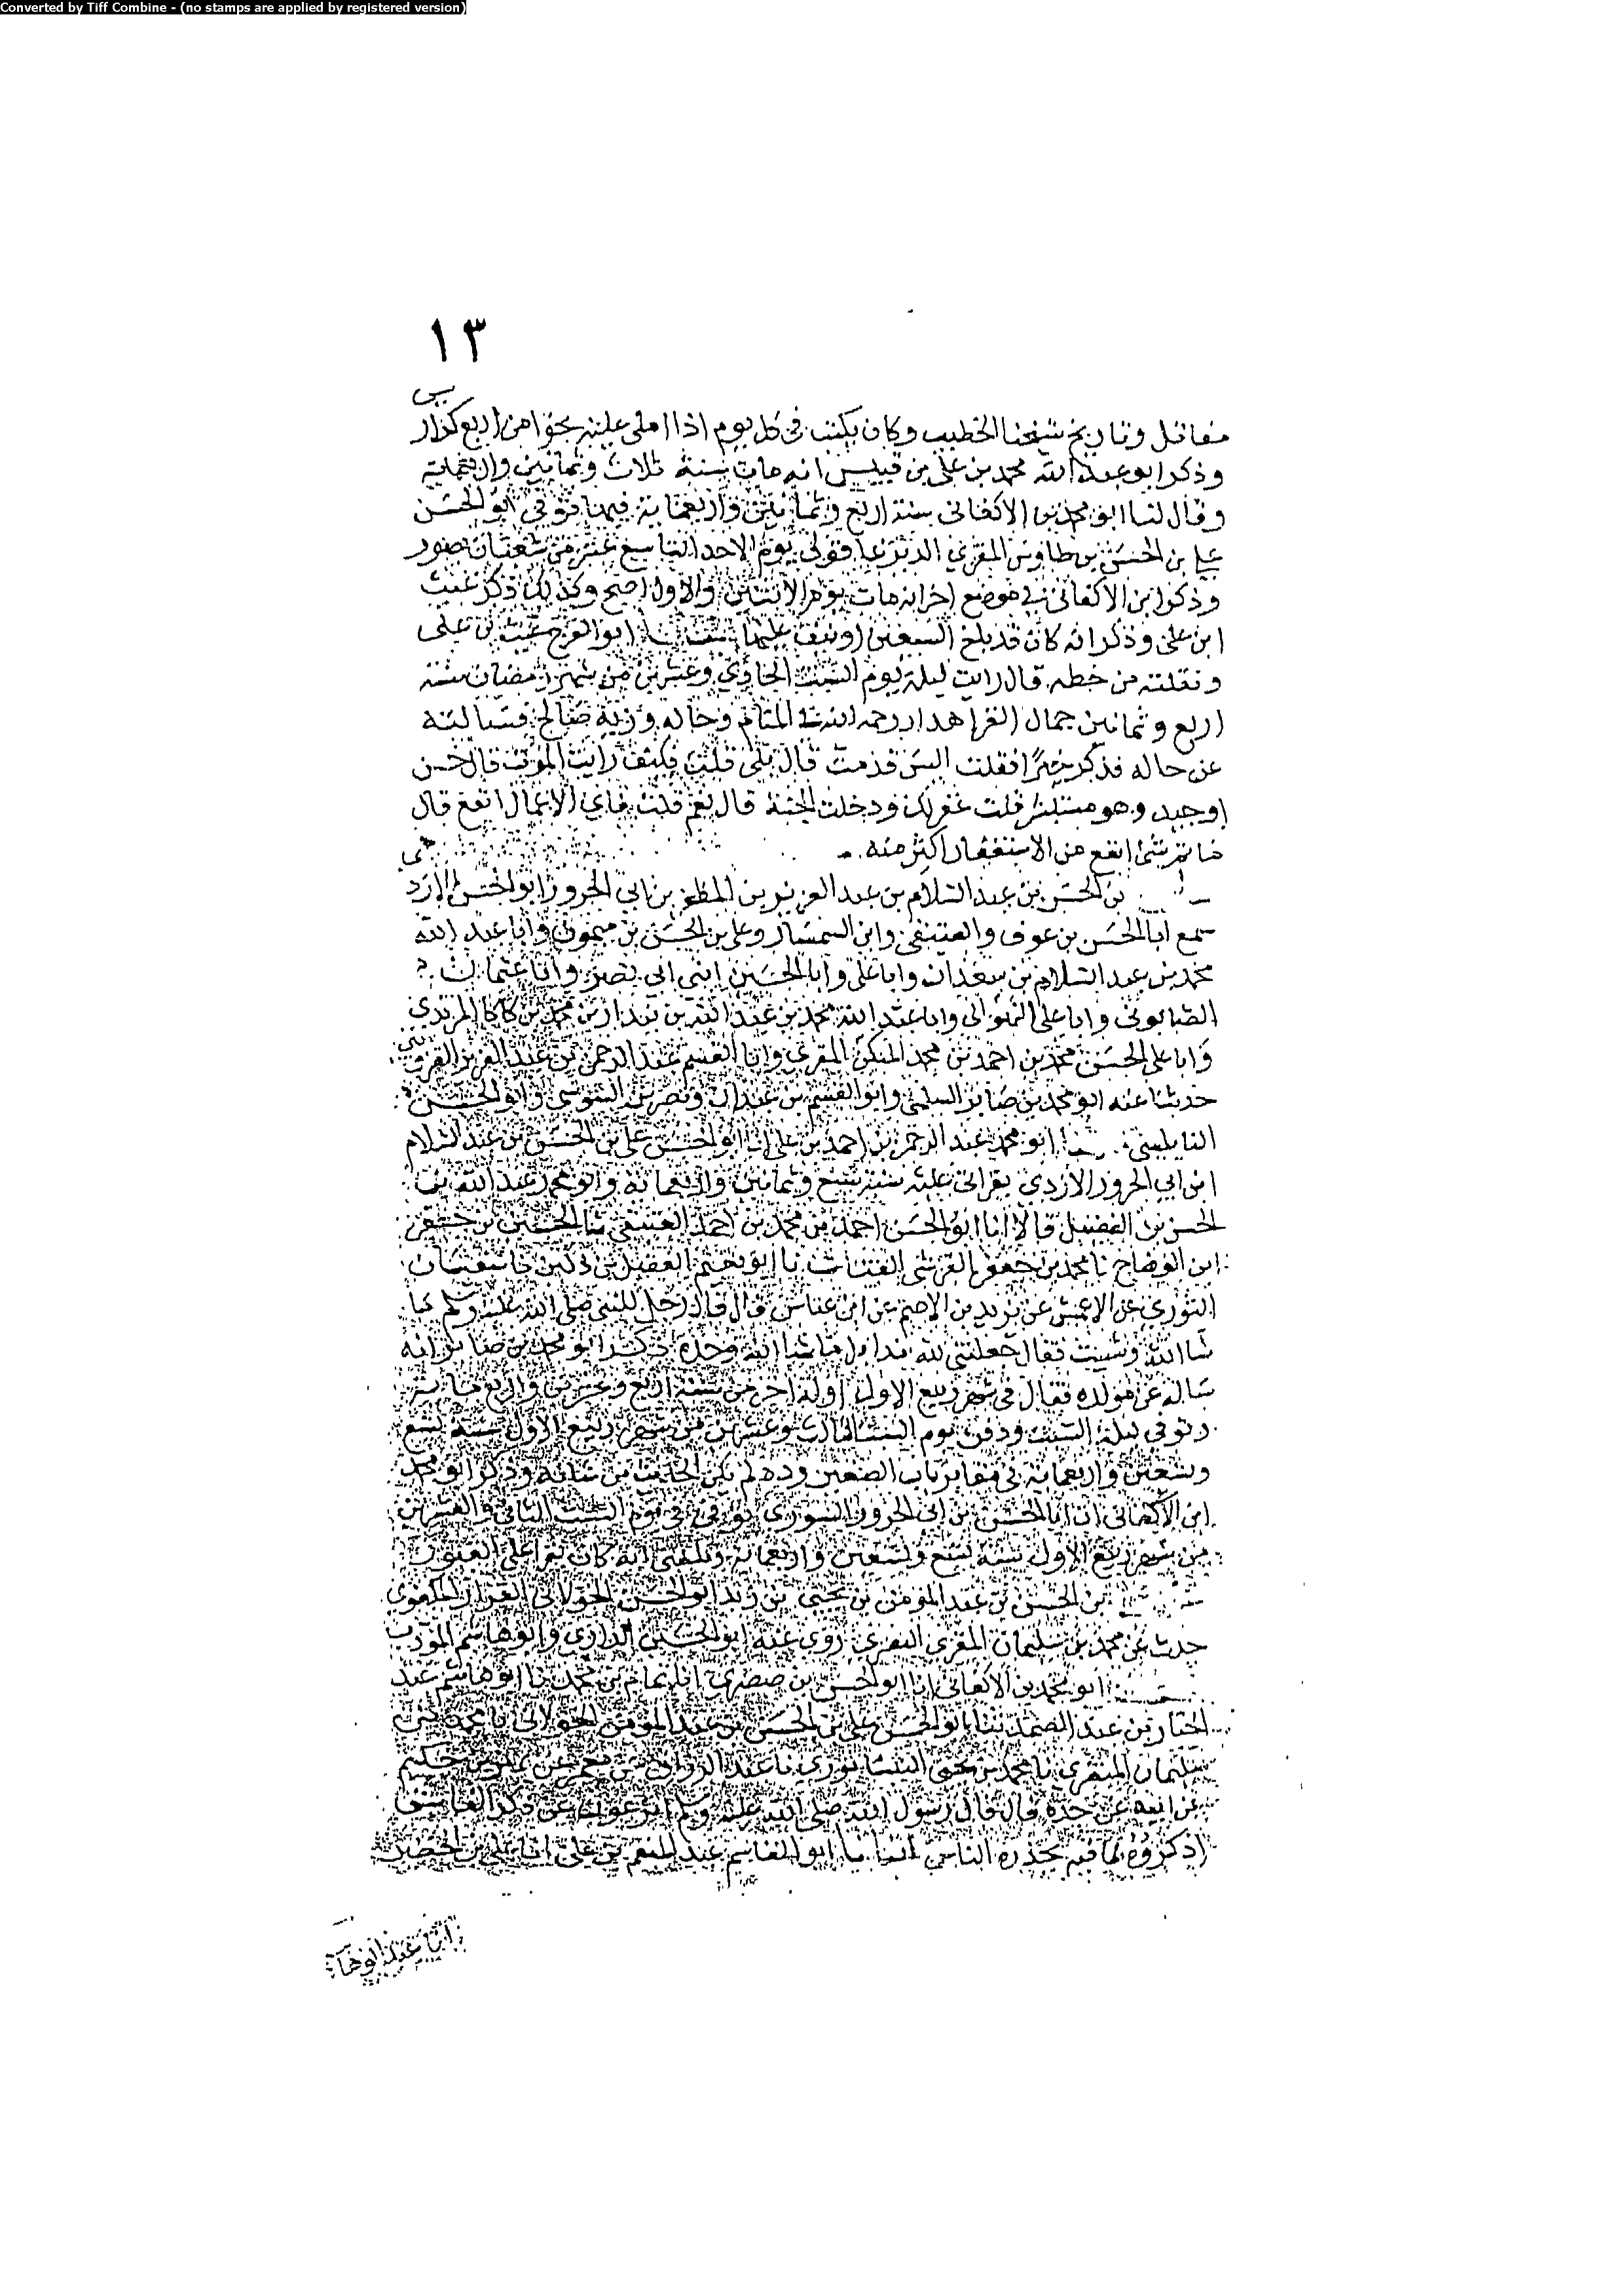 Converted by Tiff Combine - (no stamps are applied by registered version)
١٣
مقاتل وتاريخ شيخنا الخطيب وكان يكتب في كل يوم اذا املى عليه نحوا من اربع كراريس
وذكر ابو عبد الله محمد بن علي بن قبيس انه مات سنة ثلاث وثمانين واربعماية
وقال لنا ابو محمد بن الاكفاني سنة اربع وثمانين واربعماية فيها توفي ابو الحسن
علي بن الحسن بن طاوس المقري الديرعاقولي يوم الاحد التاسع عشر من شعبان بصور
وذكر ابن الاكفاني في موضع اخر انه مات يوم الاثنين والاول اصح وكذلك ذكر غيث
ابن علي وذكر انه كان قد بلغ السبعين او نيف عليها ابو الفرج غيث بن علي
ونقلته من خطه قال رايت ليلة يوم السبت الحادي وعشرين من شهر رمضان سنة
اربع وثمانين جمال القرا هذا رحمه الله في المنام وحاله وزية صالح فسالته
عن حاله فذكر خيرا فقلت اليس قد مت قال بلى قلت فكيف رايت الموت قال حسن
او جيد وهو مستبشر قلت غفر لك ودخلت الجنة قال نعم قلت فاي الاعمال انفع قال
ما ثم شي انفع من الاستغفار اكثر منه
بن الحسن بن عبد السلام بن عبد العزيز بن المظفر بن ابي الحزور ابو الحسن الازدي
سمع ابا الحسن بن عوف والعتيقي وابن السمسار وعلي بن الحسن بن ميمون وابا عبد الله
محمد بن عبد السلام بن سعدان وابا علي وابا الحسين ابني ابي نصر وابا عثمان
الصابوني وابا علي الاهوازي وابا عبد الله محمد بن عبد الله بن بندار بن محمد بن كاكا المرندي
وابا علي الحسن بن محمد بن احمد بن محمد المقري وابا القسم عبد الرحمن بن عبد العزيز
حدثنا عنه ابو محمد بن صابر السلمي وابو القسم بن عبدان ونصر بن السوسي وابو الحسن
النابلسي ابو محمد عبد الرحمن بن احمد بن علي انا ابو الحسن علي بن الحسن بن عبد السلام
ابن ابي الحزور الازدي بقراتي عليه سنة سبع وثمانين واربعماية وابو محمد عبد الله بن
الحسن بن الفضيل قالا انا ابو الحسن احمد بن محمد بن احمد العتيقي نا الحسين بن جعفر
ابن الوضاح نا محمد بن جعفر القرشي القتات نا ابو نعيم الفضل بن دكين نا سفيان
الثوري عن الاعمش عن يزيد بن الاصم عن ابن عباس قال قال رجل للنبي صلى الله عليه وسلم ما
شا الله وشيت فقال جعلتني لله ندا بل ما شا الله وحده ذكر ابو محمد بن صابر انه
ساله عن مولده فقال في شهر ربيع الاول اوله اخر من سنة اربع وعشرين واربع ماية
وتوفي ليلة السبت ودفن يوم السبت الثالث وعشرين من شهر ربيع الاول سنة تسع
وتسعين واربعماية في مقابر باب الصغير وذكر لم يكن الحديث من شانه وذكر ابو محمد
ابن الاكفاني ان ابا الحسن بن ابي الحزور توفي في يوم السبت الثاني والعشرين
من شهر ربيع الاول سنة تسع وتسعين واربعماية وبلغني انه كان يقرا على القبور
بن الحسن بن عبد المومن بن يحيى بن زيد ابو الحسن الخولاني القزاز المكفوف
حدث عن محمد بن سليمان المنقري البصري روى عنه ابو الحسين الرازي وابو هاشم المودب
ابو محمد بن الاكفاني انا ابو الحسن بن صصرى انا تمام بن محمد نا ابو هاشم عبد
الجبار بن عبد الصمد نا ابو الحسن علي بن الحسن بن عبد المومن الخولاني نا محمد بن
سليمان المنقري نا محمد بن يحيى النيسابوري نا عبد الرزاق عن معمر عن بهز بن حكيم
عن ابيه عن جده قال قال رسول الله صلى الله عليه وسلم اترعون عن ذكر الفاسق
اذكروه بما فيه يحذره الناس انبانا ابو القاسم عبد المنعم بن علي انا علي بن الخضر
انا عبد الوهاب